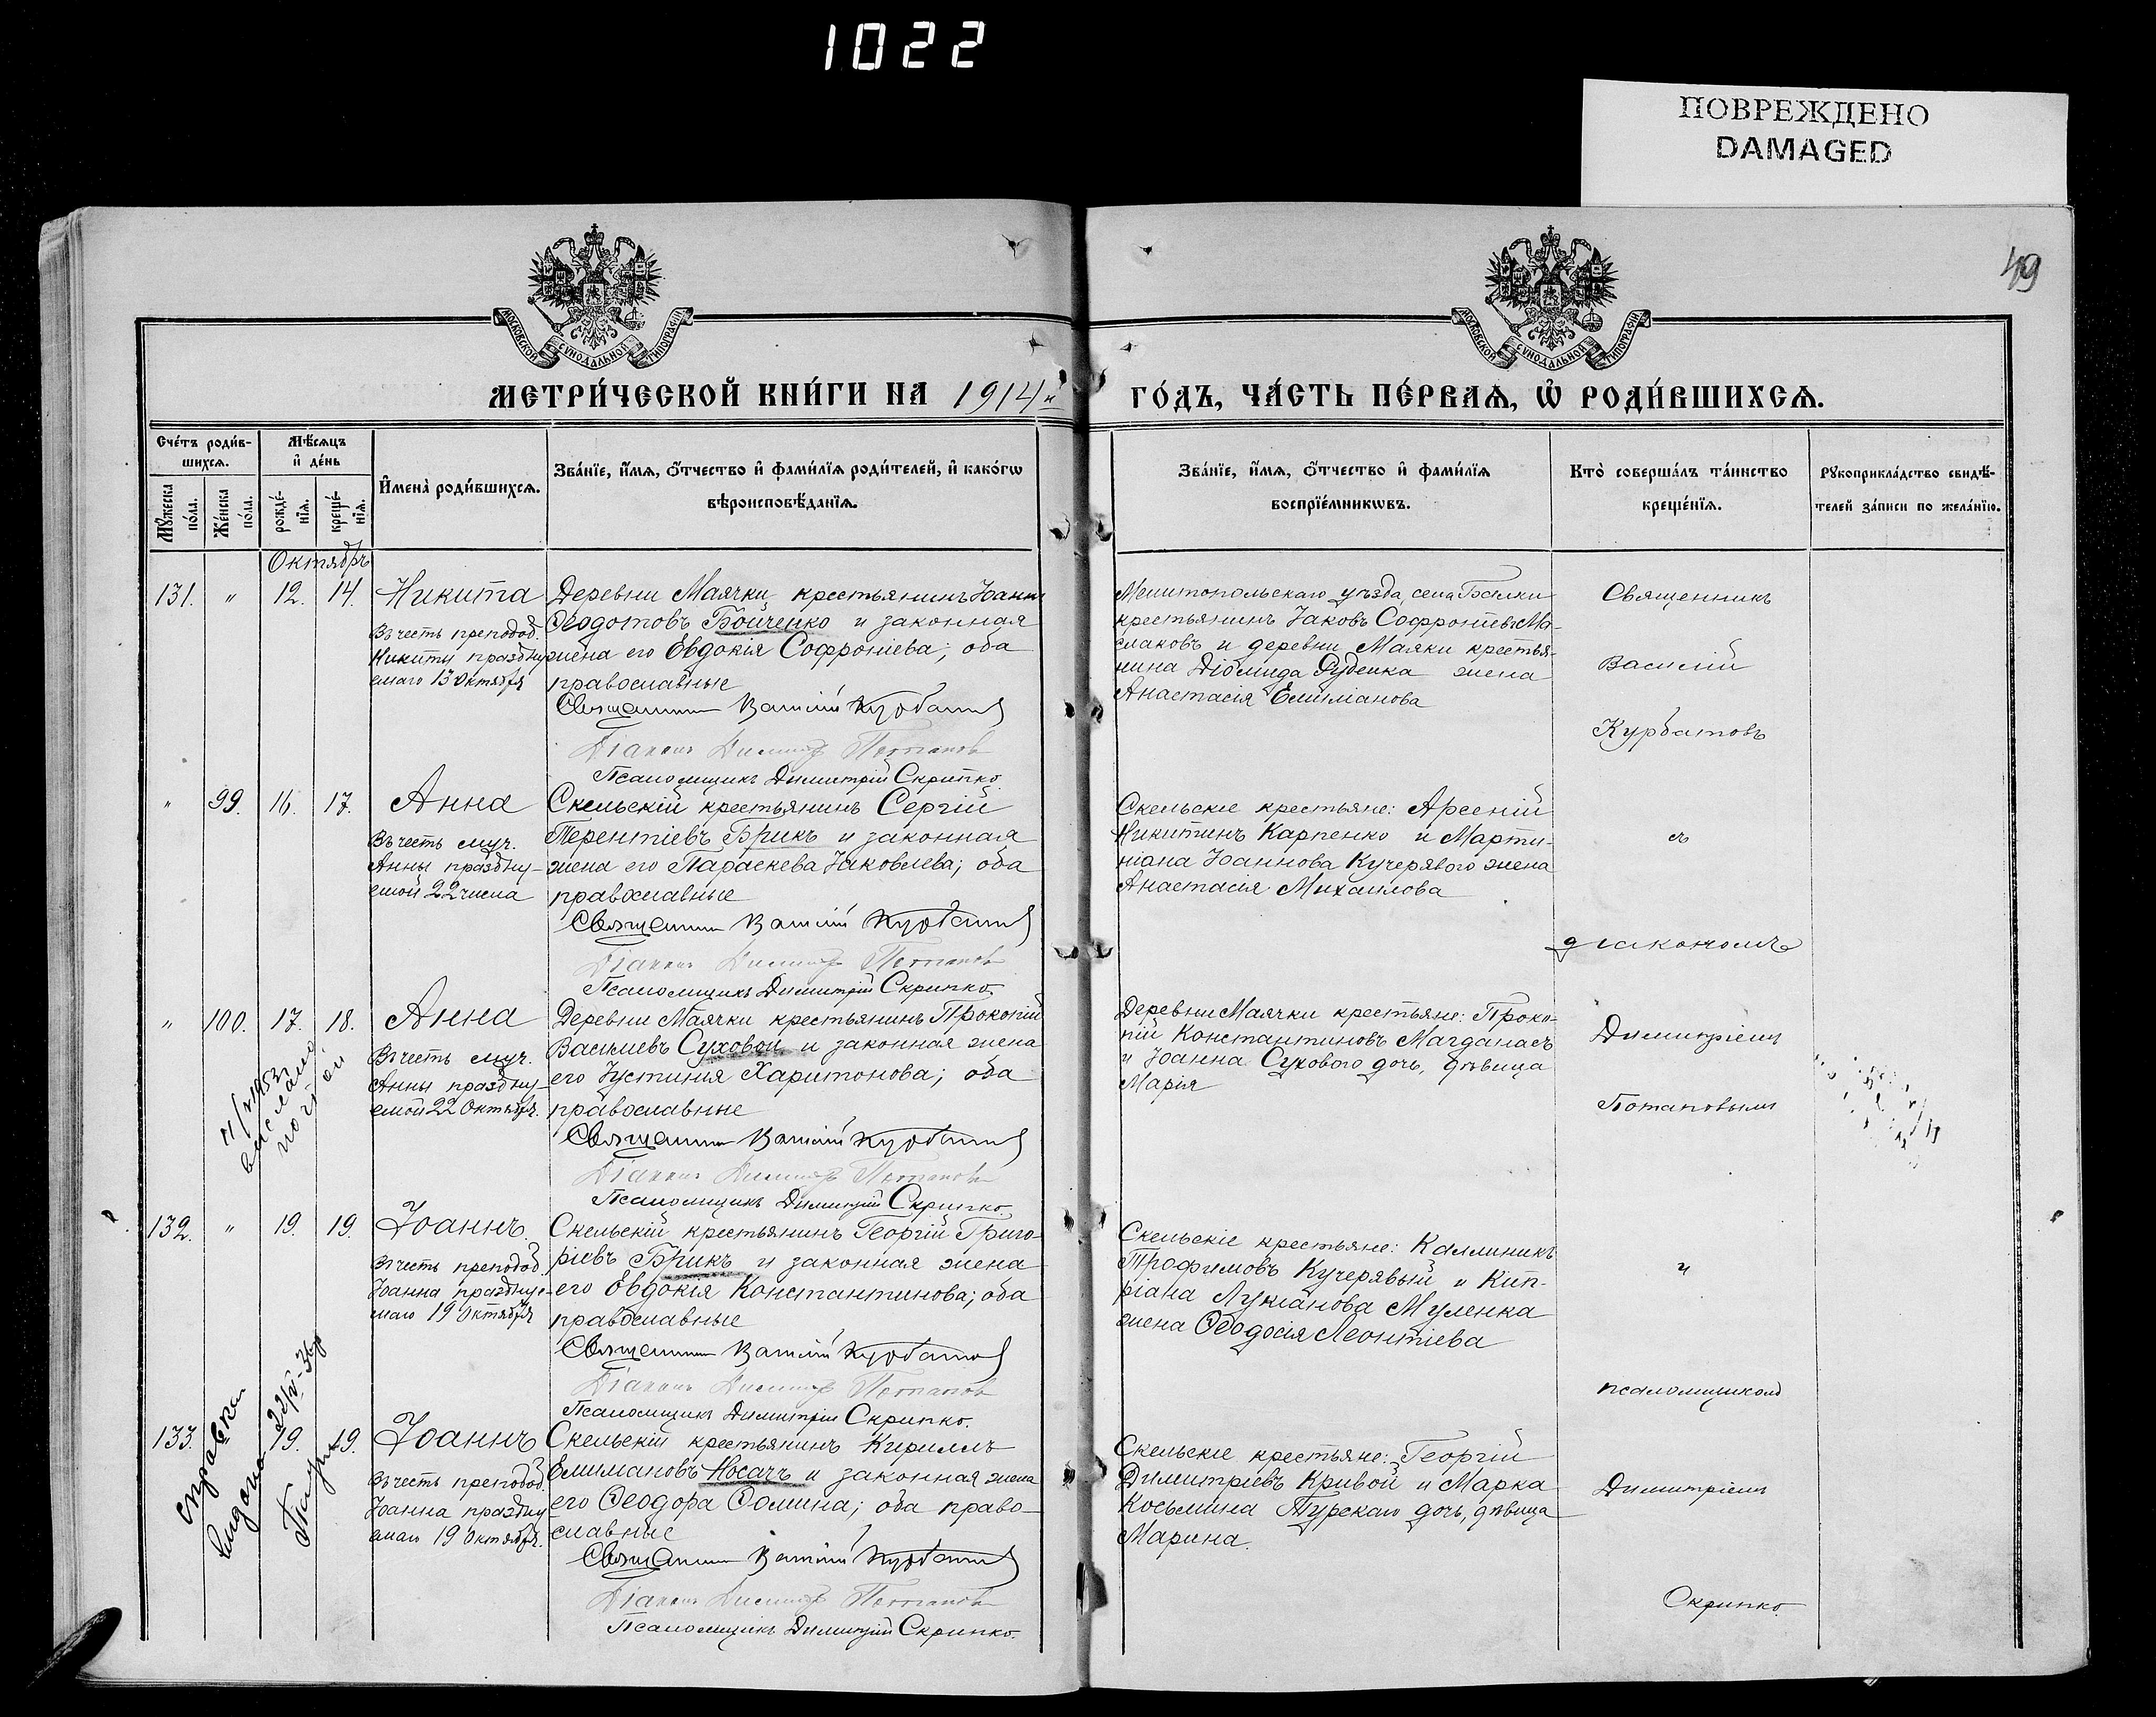 1022
ПОВРЕЖДЕНО
DAMAGED
49
МОСКОВСКОЙ СѴНОДАЛЬНОЙ ТИПОГРАФІИ
МОСКОВСКОЙ СѴНОДАЛЬНОЙ ТИПОГРАФІИ
МЕТРИ́ЧЕСКОЙ КНИ́ГИ НА 1914й ГО́ДЪ, ЧА́СТЬ ПЕ́РВАѦ, Ѡ҆ РОДИ́ВШИХСѦ.
Сче́тъ роди́в-
шихсѧ.
Мꙋ́жеска
по́ла.
Же́нска
по́ла.
Мѣ́сѧцъ
и҆ де́нь
рожде́-
нїѧ.
креще́-
нїѧ.
И҆мена̀ роди́вшихсѧ.
Зва́нїе, и҆́мѧ, ѻ҆́тчество и҆ фами́лїѧ роди́телей, и҆ како́гѡ
вѣроисповѣ́данїѧ.
Зва́нїе, и҆́мѧ, ѻ҆́тчество и҆ фами́лїѧ
воспрїе́мникѡвъ.
Кто̀ соверша́лъ та́инство
креще́нїѧ.
Рꙋкоприкла́дство свидѣ́-
телей за́писи по жела́нїю.
Октябрь
131. " 12. 14. Никита
Въ честь преподоб.
Никиты праздну
емаго 13 Октября
Деревни Маячки крестьянинъ Іоаннъ
Ѳеодотовъ Бойченко и законная
жена его Евдокія Софроніева; оба
православные
Священникъ Василій Курбатовъ
Діаконъ Димитрій Потаповъ
Псаломщикъ Димитрій Скрипко.
Мелитопольскаго уѣзда, села Бѣлки
крестьянинъ Іаковъ Софроніевъ Ма-
слаковъ и деревни Маячки крестья-
нина Діомида Дуденка жена
Анастасія Емиліанова
Священникъ
Василій
Курбатовъ
" 99. 16. 17. Анна
Въ честь муч.
Анны праздну-
емой 22 числа
Скельскій крестьянинъ Сергій
Терентіевъ Брикъ и законная
жена его Параскева Іаковлева; оба
православные
Священникъ Василій Курбатовъ
Діаконъ Димитрій Потаповъ
Псаломщикъ Димитрій Скрипко.
Скельскіе крестьяне: Арсеній
Никитинъ Карпенко и Марти-
ніана Іоаннова Кучерявого жена
Анастасія Михаилова
съ
діакономъ
" 100. 17. 18. Анна
Въ честь муч.
Анны праздну-
емой 22 Октября.
выслано
почтой
Деревни Маячки крестьянинъ Прокопій
Васильевъ Суховой и законная жена
его Іустинія Харитонова; оба
православные
Священникъ Василій Курбатовъ
Діаконъ Димитрій Потаповъ
Псаломщикъ Димитрій Скрипко.
Деревни Маячки крестьяне: Проко-
пій Константиновъ Магданасъ
и Іоанна Сухового дочь, дѣвица
Марія
Димитріемъ
Потаповымъ
132. " 19. 19. Іоаннъ.
Въ честь преподоб.
Іоанна праздну-
емаго 19 Октября
Скельскій крестьянинъ Георгій Григо-
ріевъ Брикъ и законная жена
его Евдокія Константинова; оба
православные
Священникъ Василій Курбатовъ
Діаконъ Димитрій Потаповъ
Псаломщикъ Димитрій Скрипко.
Скельскіе крестьяне: Каллиникъ
Трофимовъ Кучерявый и Кип-
ріана Лукіанова Муленка
жена Ѳеодосія Леонтіева
и
псаломщикомъ
133. 19. 19. Іоаннъ
Въ честь преподоб.
Іоанна праздну
емаго 19 Октября.
справка
видана
Скельскій крестьянинъ Кириллъ
Емиліановъ Носачъ и законная жена
его Ѳеодора Ѳомина; оба право-
славные
Священникъ Василій Курбатовъ
Діаконъ Димитрій Потаповъ
Псаломщикъ Димитрій Скрипко.
Скельскіе крестьяне: Георгій
Димитріевъ Кривой и Марка
Косьмина Турскаго дочь, дѣвица
Марина.
Димитріемъ
Скрипко.